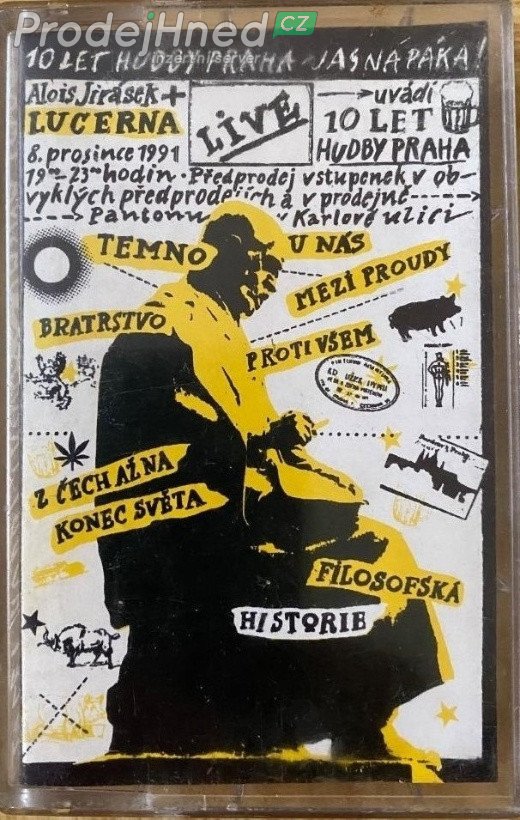 ProdejHned CZ
inzertní server
10 LET HUDBY PRAHA - JASNÁ PÁKA!
Alois Jirásek +
LUCERNA
LIVE
uvádí
10 LET
HUDBY PRAHA
8. prosince 1991
19⁰⁰-23⁰⁰ hodin · Předprodej vstupenek v ob-
vyklých předprodejích a v prodejně
Pantonu v Karlově ulici
TEMNO
U NÁS
MEZI PROUDY
BRATRSTVO
PROTI VŠEM
Z ČECH AŽ NA
KONEC SVĚTA
FILOSOFSKÁ
HISTORIE